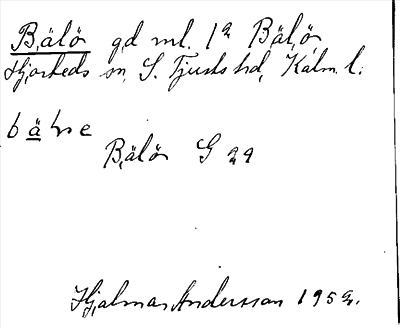 Bälö gd ml. 1/2 Bälö,
Hjorteds sn, S. Tjusts hd, Kalm. l.
bähre
Bälö G 29
Hjalmar Andersson 1952.